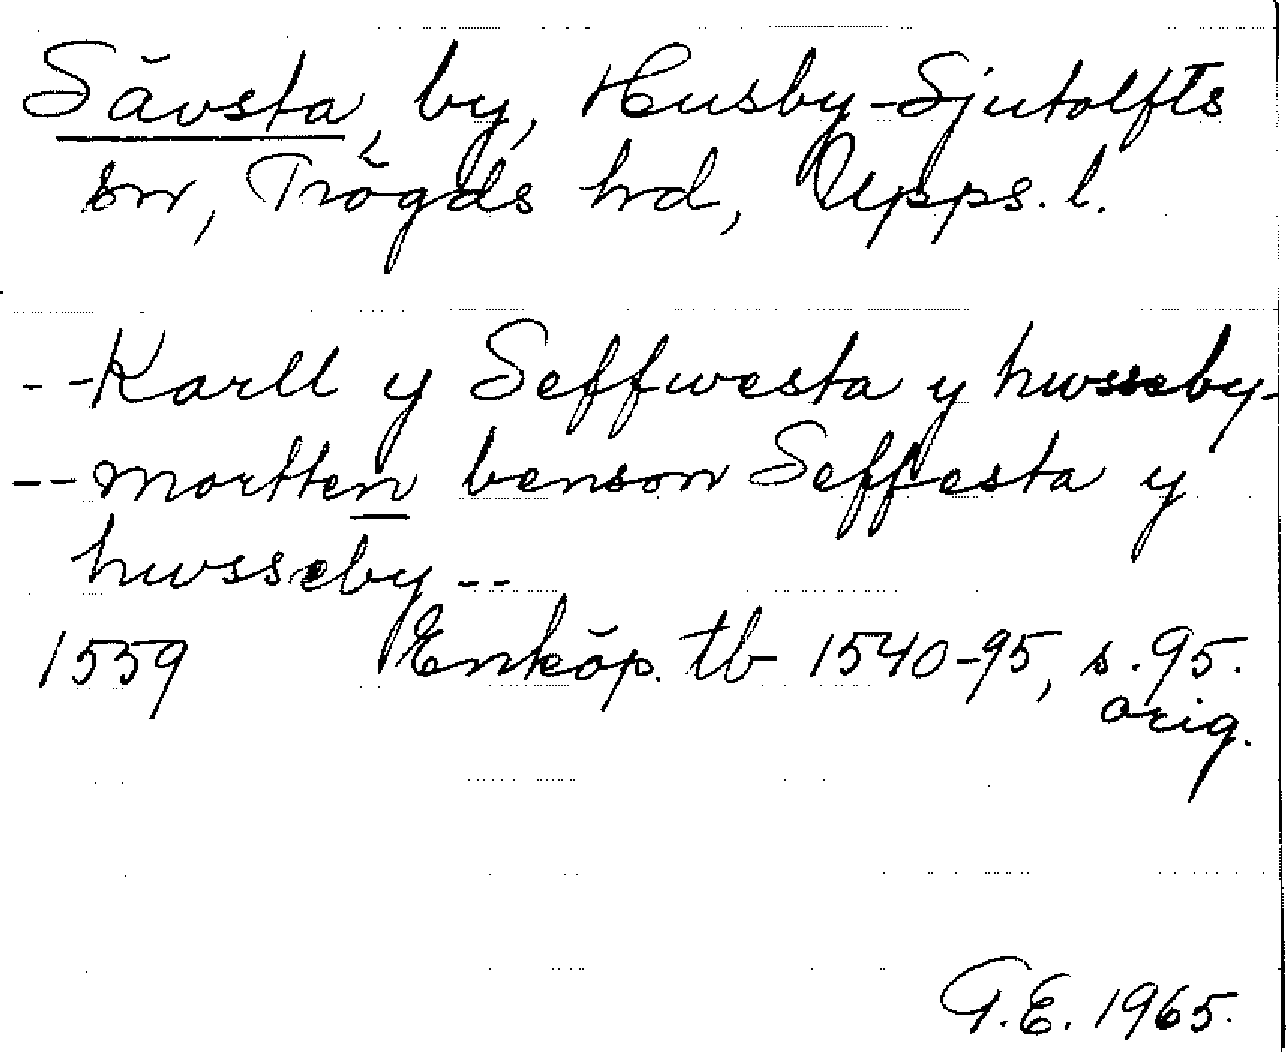 Sävsta, by, Husby-Sjutolfts
sn, Trögds hd, Upps. l.
--Karll y Seffwesta y hwsseby-
--mortten benson Seffesta y
hwsseby--
1559 Enköp. tb 1540-95, s. 95.
orig.
G.E. 1965.